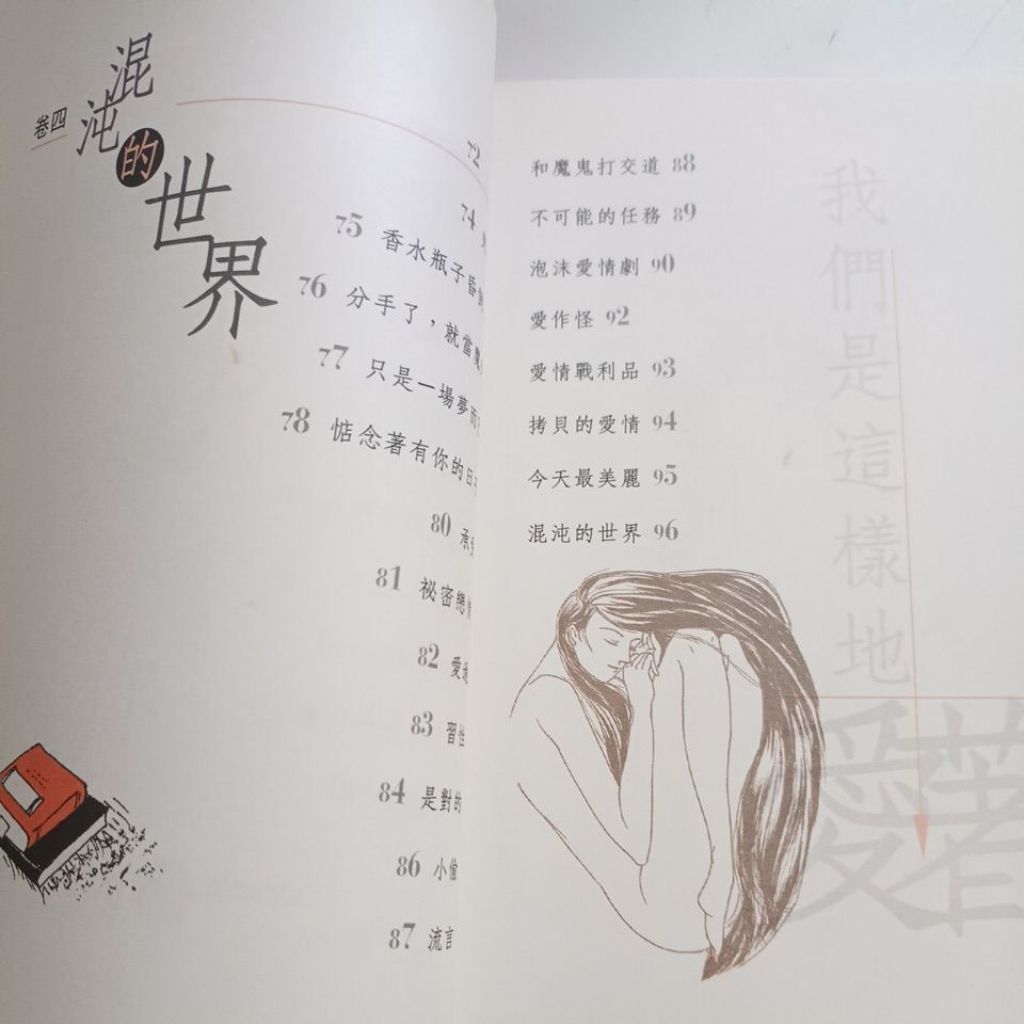 卷四
混沌的世界
72
74
75 香水瓶子昏
76 分手了，就當
77 只是一場夢而
78 惦念著有你的日
80 承
81 祕密戀
82 愛
83 習性
84 是對的
86 小偷
87 流言
和魔鬼打交道 88
不可能的任務 89
泡沫愛情劇 90
愛作怪 92
愛情戰利品 93
拷貝的愛情 94
今天最美麗 95
混沌的世界 96
我們是這樣地
愛著